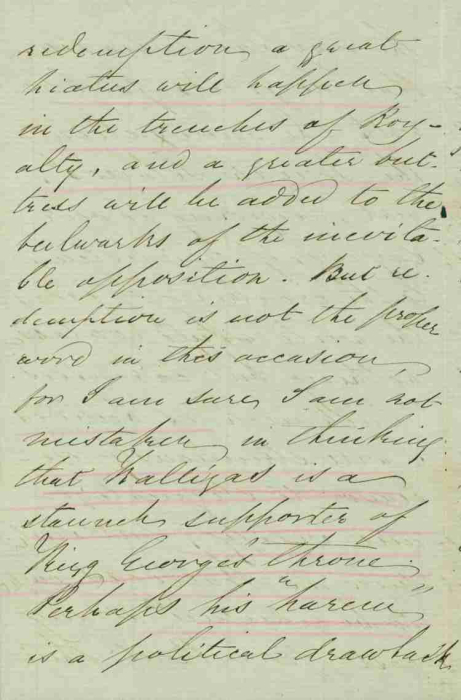 redemption a great
hiatus will happen
in the trenches of Roy-
alty, and a greater but-
tress will be added to the
bulwarks of the inevita-
ble opposition. But re-
demption is not the proper
word in this occasion,
for I am sure, I am not
mistaken in thinking
that Kalligas is a
staunch supporter of
King George's throne.
Perhaps his "harem"
is a political drawback